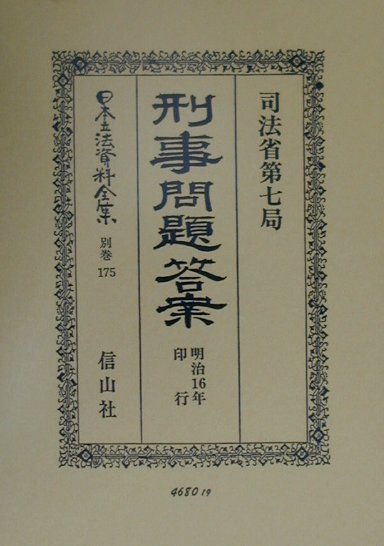 司法省第七局
刑事問題答案
明治16年
印行
日本立法資料全集
別巻
175
信山社
4680 19